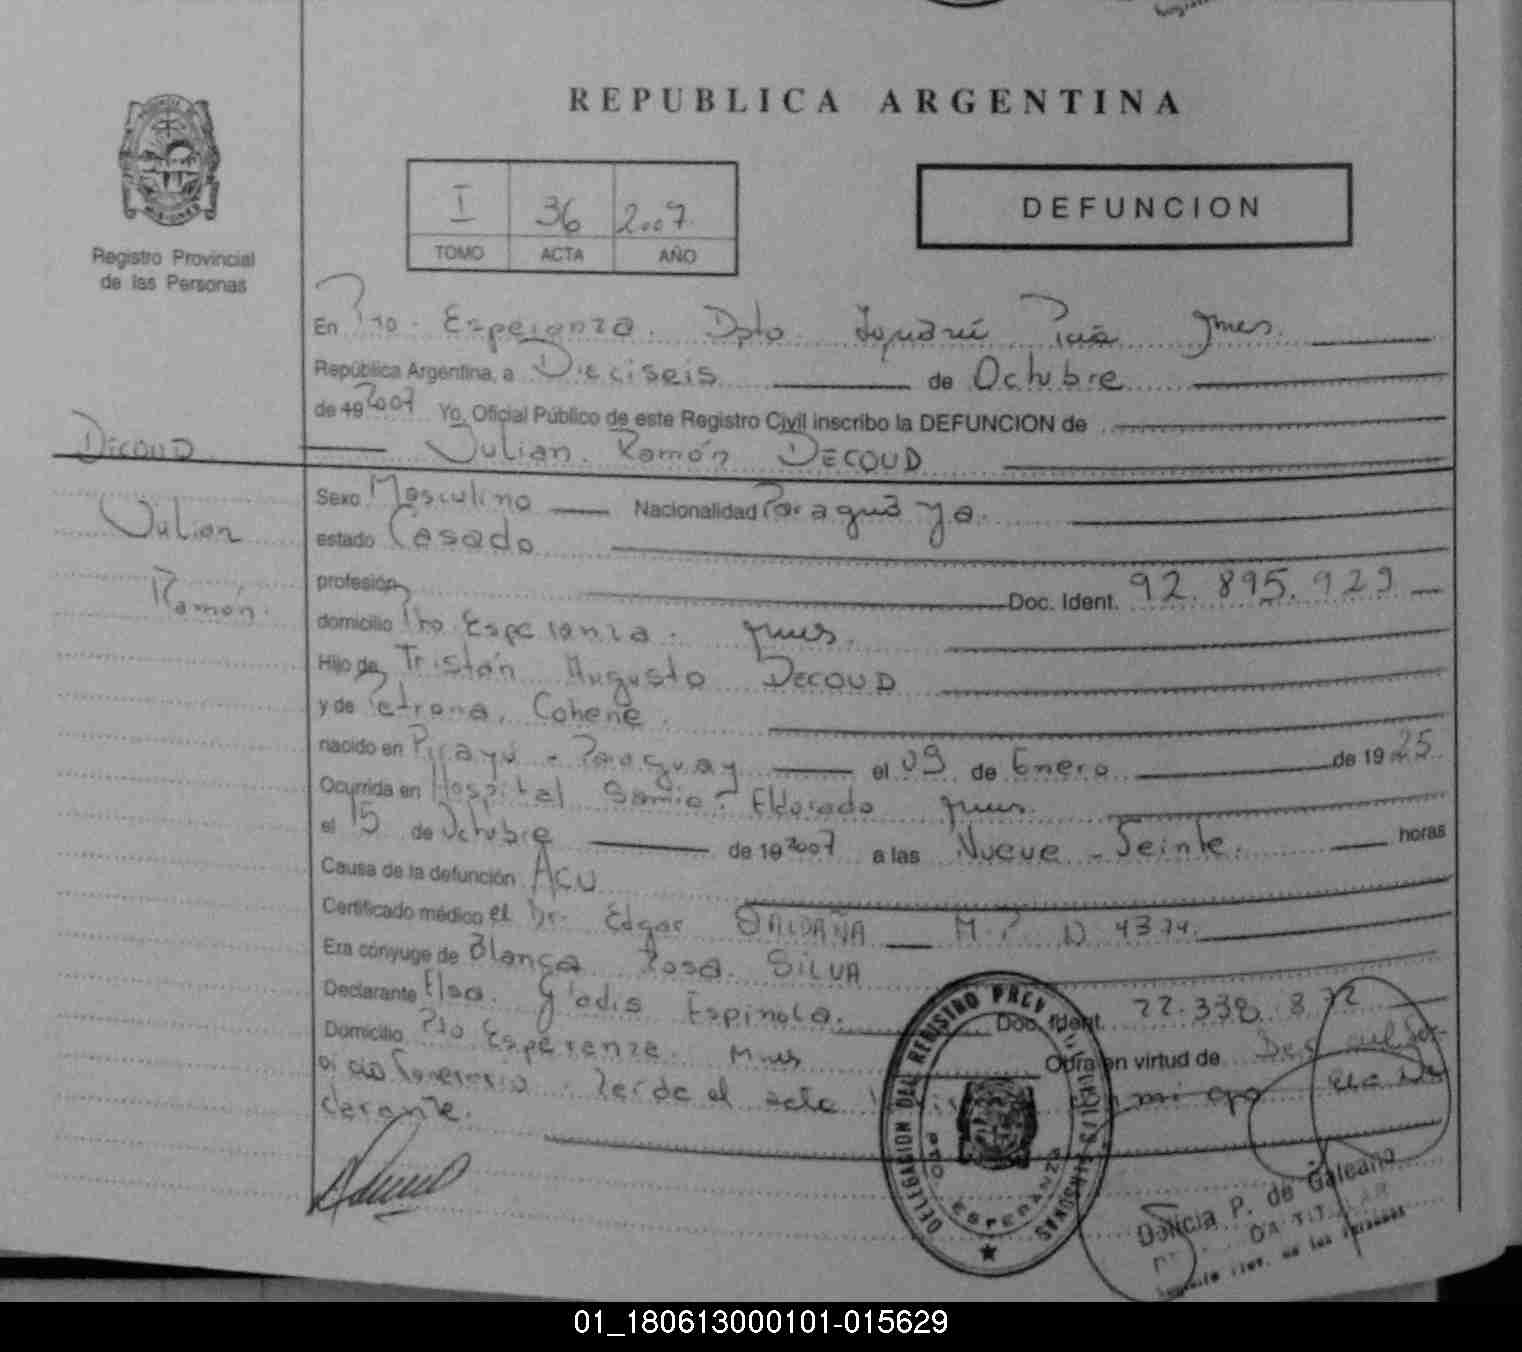 REPUBLICA ARGENTINA
MISIONES
Registro Provincial
de las Personas
I 36 2007
TOMO ACTA AÑO
DEFUNCION
En Pto. Esperanza. Dpto. Iguazú Mnes.
República Argentina, a Dieciseis de Octubre
de 19 2007 Yo, Oficial Público de este Registro Civil inscribo la DEFUNCION de
DECOUD
Julian Ramón DECOUD
Julian
Ramón.
Sexo Masculino Nacionalidad Paraguaya.
estado Casado
profesión Doc. Ident. 92.895.929
domicilio Pto Esperanza. Mnes.
Hijo de Tristán Augusto DECOUD
y de Petrona Cohene.
nacido en Pirayú - Paraguay el 09 de Enero de 1925
Ocurrida en Hospital Samic. Eldorado Mnes.
el 15 de Octubre de 19 2007 a las Nueve - Veinte. horas
Causa de la defunción ACV
Certificado médico el Dr. Edgar SALDAÑA M.P. N 4374.
Era cónyuge de Blanca Rosa SILVA
Declarante Elsa Gladis Espinola. Doc. Ident. 22.338.872
Domicilio Pto Esperanza. Mnes Obra en virtud de
Leída el acta
clarante.
DELEGACION DEL REGISTRO PROV. DE LAS PERSONAS
PTO. ESPERANZA
Delicia P. de Galeano
TITULAR
de las Personas
01_180613000101-015629